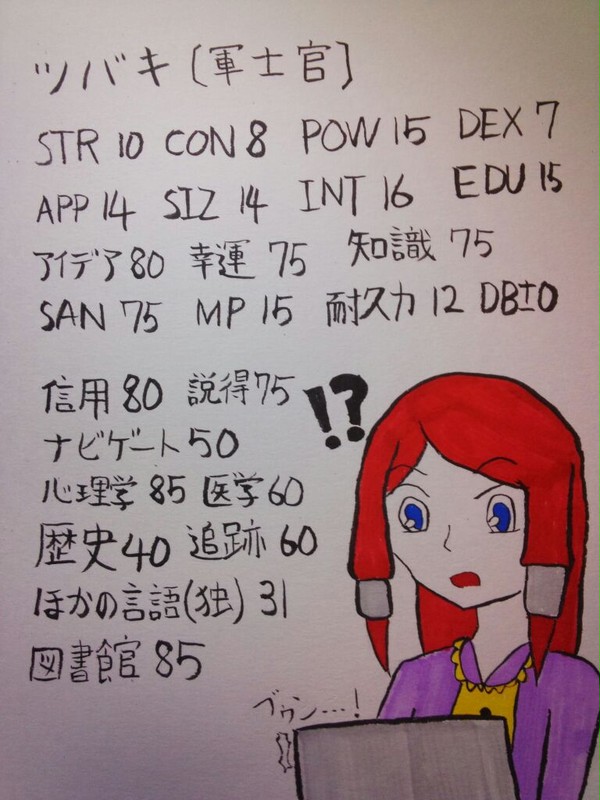 ツバキ〔軍士官〕
STR 10 CON 8 POW 15 DEX 7
APP 14 SIZ 14 INT 16 EDU 15
アイデア 80 幸運 75 知識 75
SAN 75 MP 15 耐久力 12 DB±0
信用 80 説得 75
!?
ナビゲート 50
心理学 85 医学 60
歴史 40 追跡 60
ほかの言語(独) 31
図書館 85
ブゥン…!